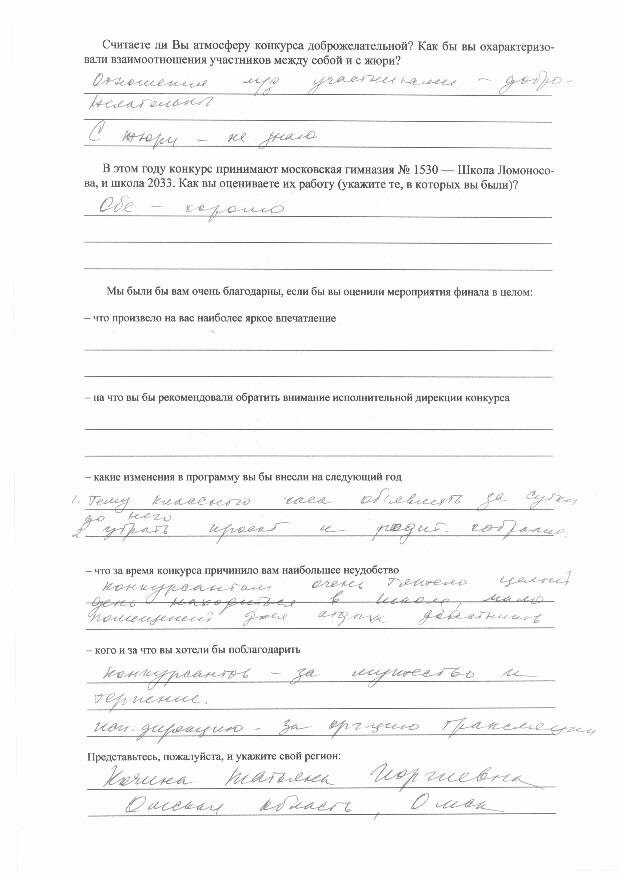 Считаете ли Вы атмосферу конкурса доброжелательной? Как бы вы охарактеризо-
вали взаимоотношения участников между собой и с жюри?
Отношения м/у участниками – добро-
желательны
С жюри – не знаю
В этом году конкурс принимают московская гимназия № 1530 — Школа Ломоносо-
ва, и школа 2033. Как вы оцениваете их работу (укажите те, в которых вы были)?
Обе – хорошо
Мы были бы вам очень благодарны, если бы вы оценили мероприятия финала в целом:
– что произвело на вас наиболее яркое впечатление
– на что вы бы рекомендовали обратить внимание исполнительной дирекции конкурса
– какие изменения в программу вы бы внесли на следующий год
1. Тему классного часа объявлять за сутки
до него
2 убрать проект и родит. собрание.
– что за время конкурса причинило вам наибольшее неудобство
конкурсантам очень тяжело целый
день находиться в школе мало
помещений для отдыха
– кого и за что вы хотели бы поблагодарить
конкурсантов – за мужество и
терпение.
исп. дирекцию – за орг-цию трансляции
Представьтесь, пожалуйста, и укажите свой регион:
Татьяна Георгиевна
Омская область, Омск